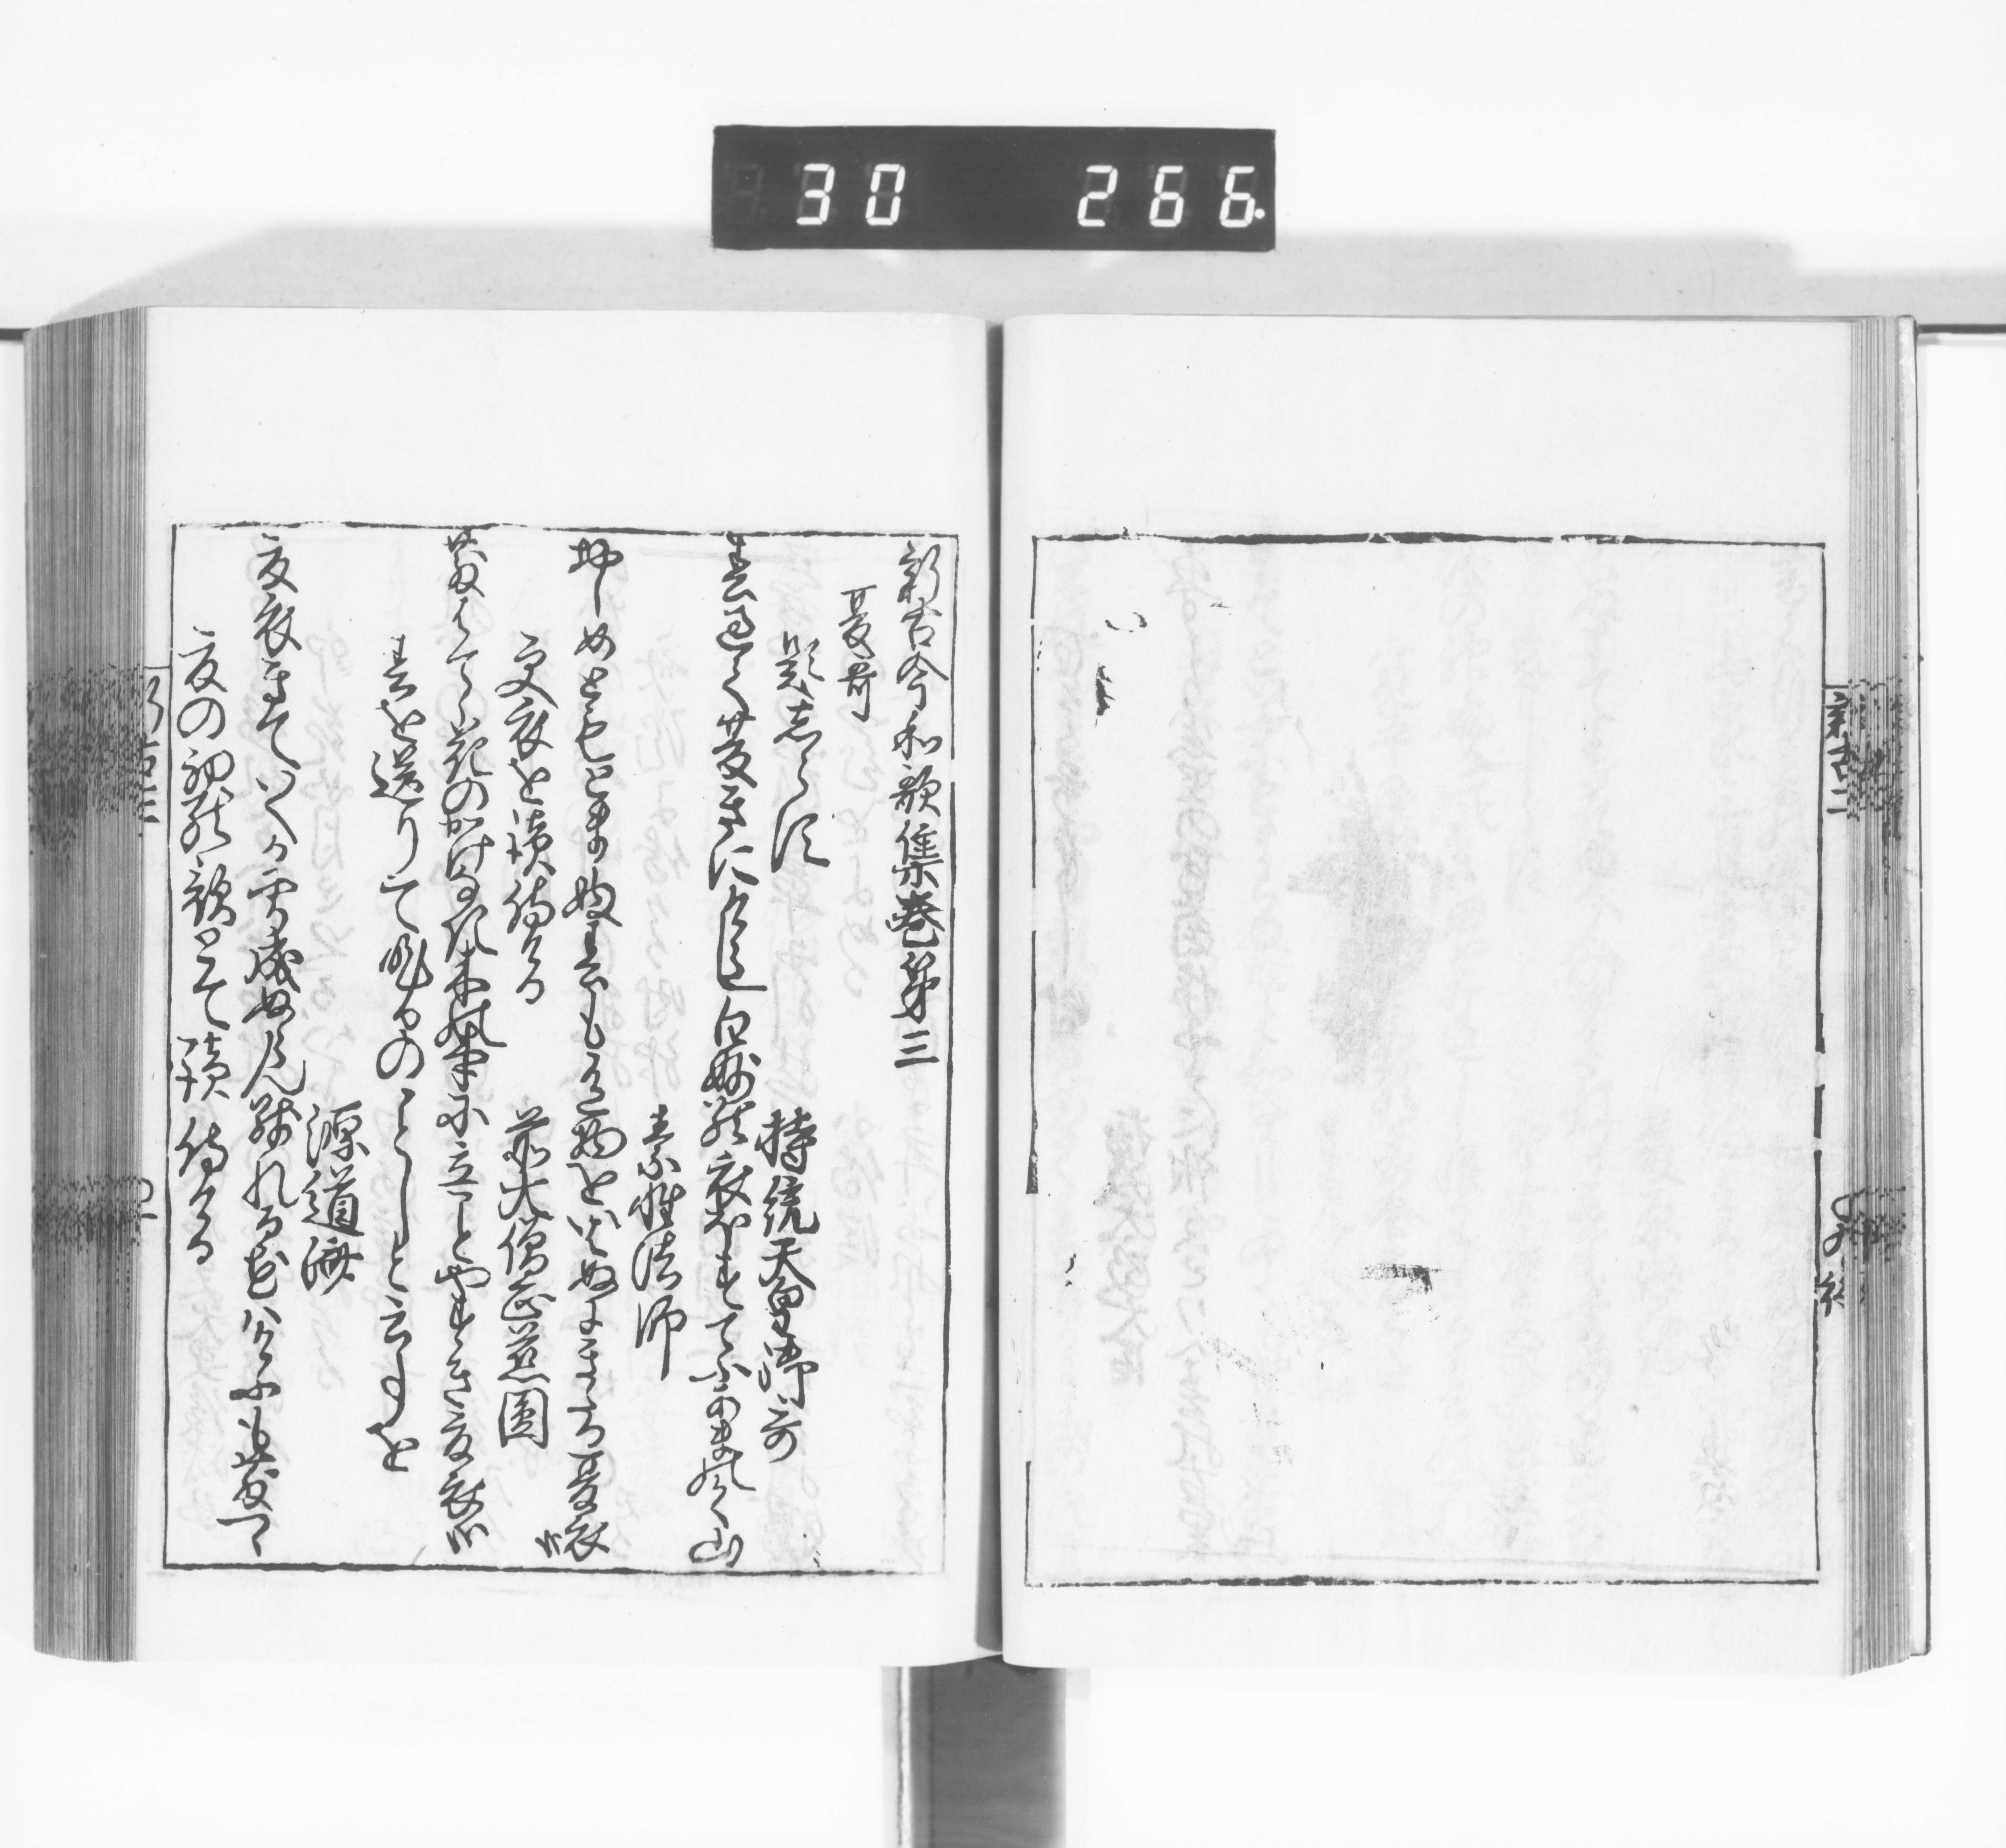 30 266.
新古今和歌集巻第三
夏哥
題志らす
持統天皇御哥
春過て夏きにけらし白妙能衣ほすてふあまのかく山
素性法師
おしめともとまらぬ春もある物をいはぬにきたる夏衣哉
更衣を読侍ける
前大僧正慈円
ちりはてて花のかけなき木本に立ことやすき夏衣哉
春を送りて昨日のことしと云事を
源道済
夏衣きていくかに成ぬらん残れる花はけふもちりつつ
夏の初能哥とて読侍ける